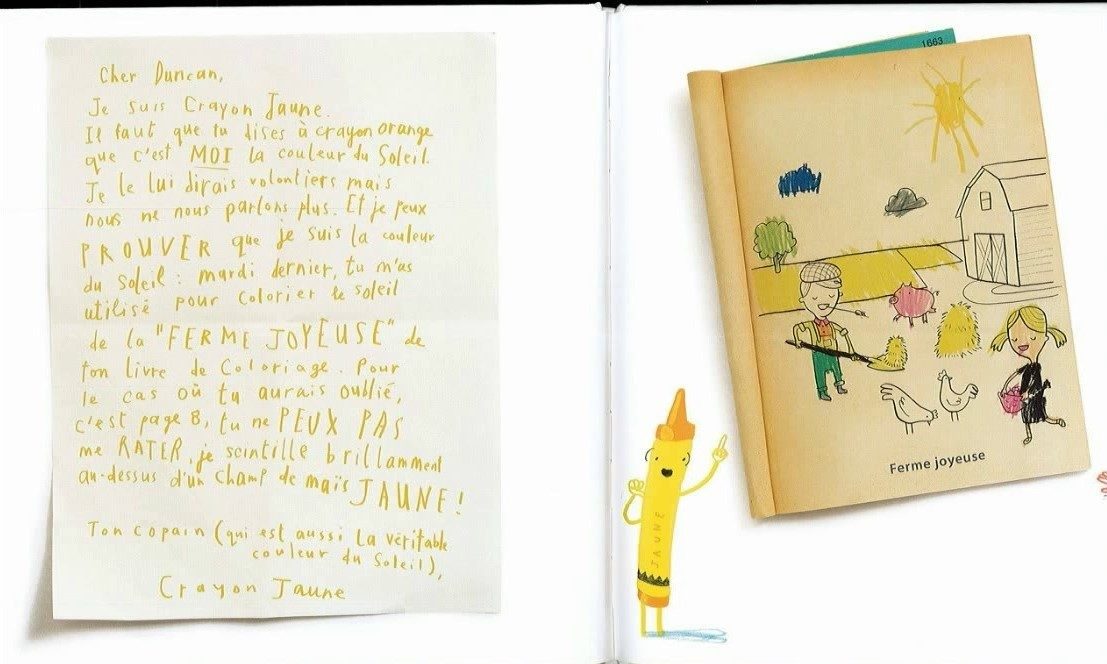 Cher Duncan,
Je suis Crayon Jaune.
Il faut que tu dises à crayon orange
que c'est MOI la couleur du Soleil.
Je le lui dirais volontiers mais
nous ne nous parlons plus. Et je peux
PROUVER que je suis la couleur
du soleil : mardi dernier, tu m'as
utilisé pour colorier le soleil
de la "FERME JOYEUSE" de
ton livre de Coloriage. Pour
le cas où tu aurais oublié,
c'est page 8, tu ne PEUX PAS
me RATER, je scintille brillamment
au-dessus d'un champ de maïs JAUNE !
Ton copain (qui est aussi la véritable
couleur du Soleil),
Crayon Jaune
1663
Ferme joyeuse
JAUNE